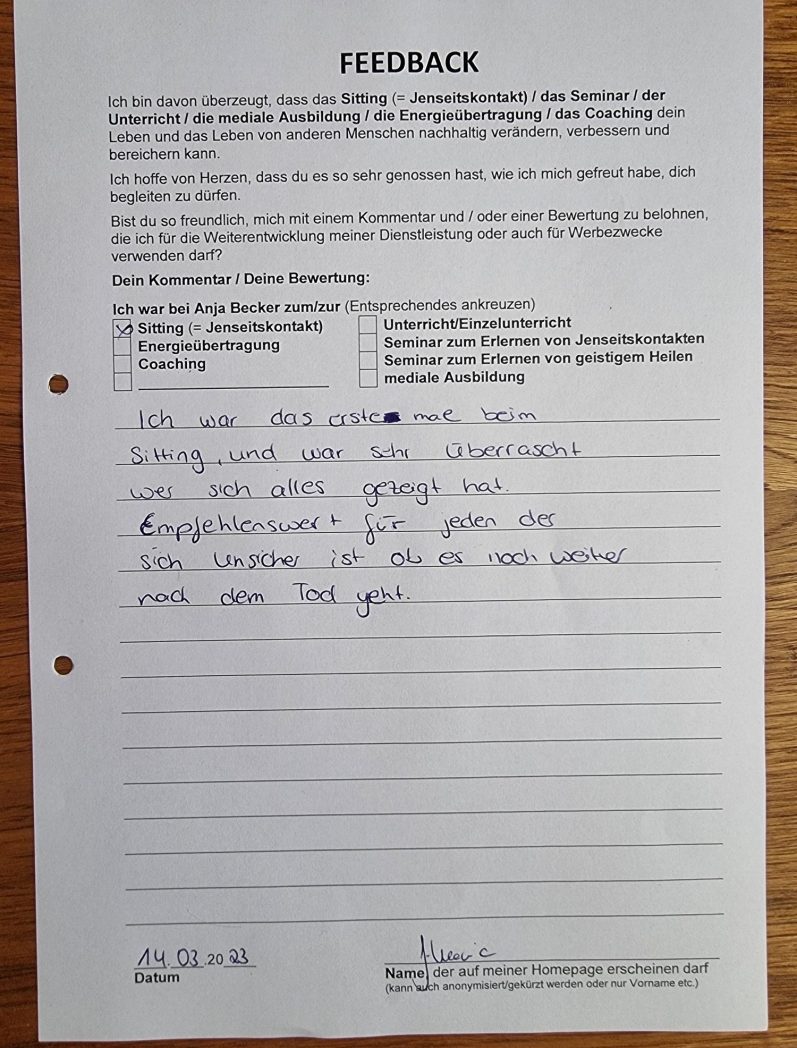 FEEDBACK
Ich bin davon überzeugt, dass das Sitting (= Jenseitskontakt) / das Seminar / der
Unterricht / die mediale Ausbildung / die Energieübertragung / das Coaching dein
Leben und das Leben von anderen Menschen nachhaltig verändern, verbessern und
bereichern kann.
Ich hoffe von Herzen, dass du es so sehr genossen hast, wie ich mich gefreut habe, dich
begleiten zu dürfen.
Bist du so freundlich, mich mit einem Kommentar und / oder einer Bewertung zu belohnen,
die ich für die Weiterentwicklung meiner Dienstleistung oder auch für Werbezwecke
verwenden darf?
Dein Kommentar / Deine Bewertung:
Ich war bei Anja Becker zum/zur (Entsprechendes ankreuzen)
Sitting (= Jenseitskontakt)
Energieübertragung
Coaching
Unterricht/Einzelunterricht
Seminar zum Erlernen von Jenseitskontakten
Seminar zum Erlernen von geistigem Heilen
mediale Ausbildung
Ich war das erste mal beim
Sitting, und war sehr überrascht
wer sich alles gezeigt hat.
Empfehlenswert für jeden der
sich unsicher ist ob es noch weiter
nach dem Tod geht.
14.03.2023
Datum
Name, der auf meiner Homepage erscheinen darf
(kann auch anonymisiert/gekürzt werden oder nur Vorname etc.)